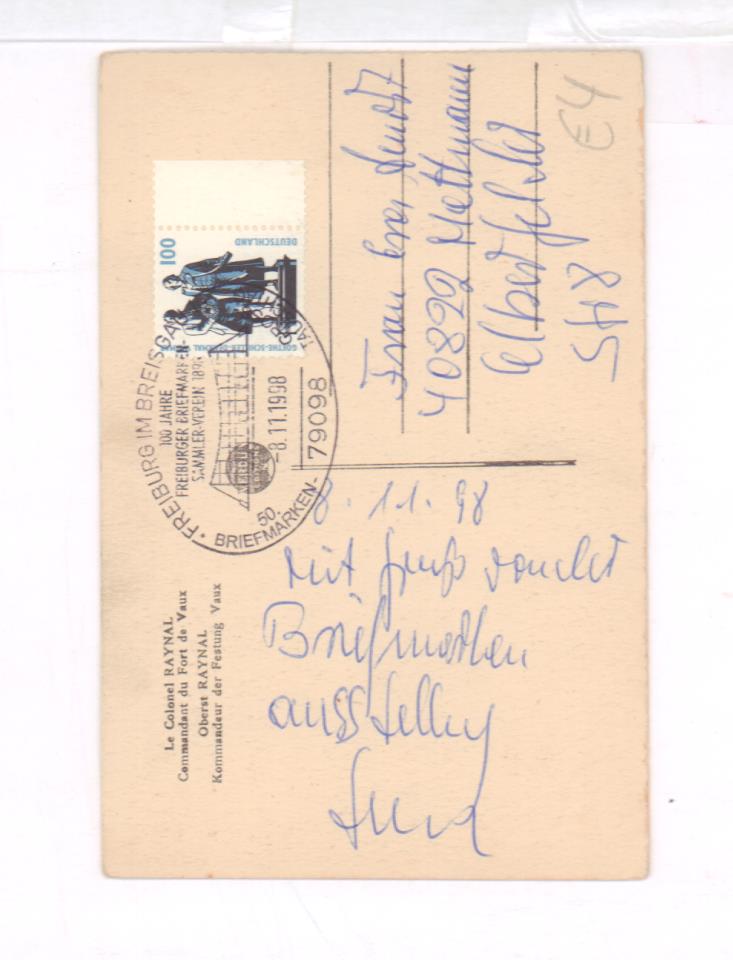 Le Colonel RAYNAL
Commandant du Fort de Vaux
Oberst RAYNAL
Kommandeur der Festung Vaux
100
DEUTSCHLAND
GOETHE-SCHILLER-DENKMAL
FREIBURG IM BREISGAU
100 JAHRE
FREIBURGER BRIEFMARKEN-
SAMMLER-VEREIN
-8.11.1998
79098
50.
BRIEFMARKEN-
Frau
40822 Mettmann
E4
8.11.98
mit Gruß von der
Briefmarken
ausstellung